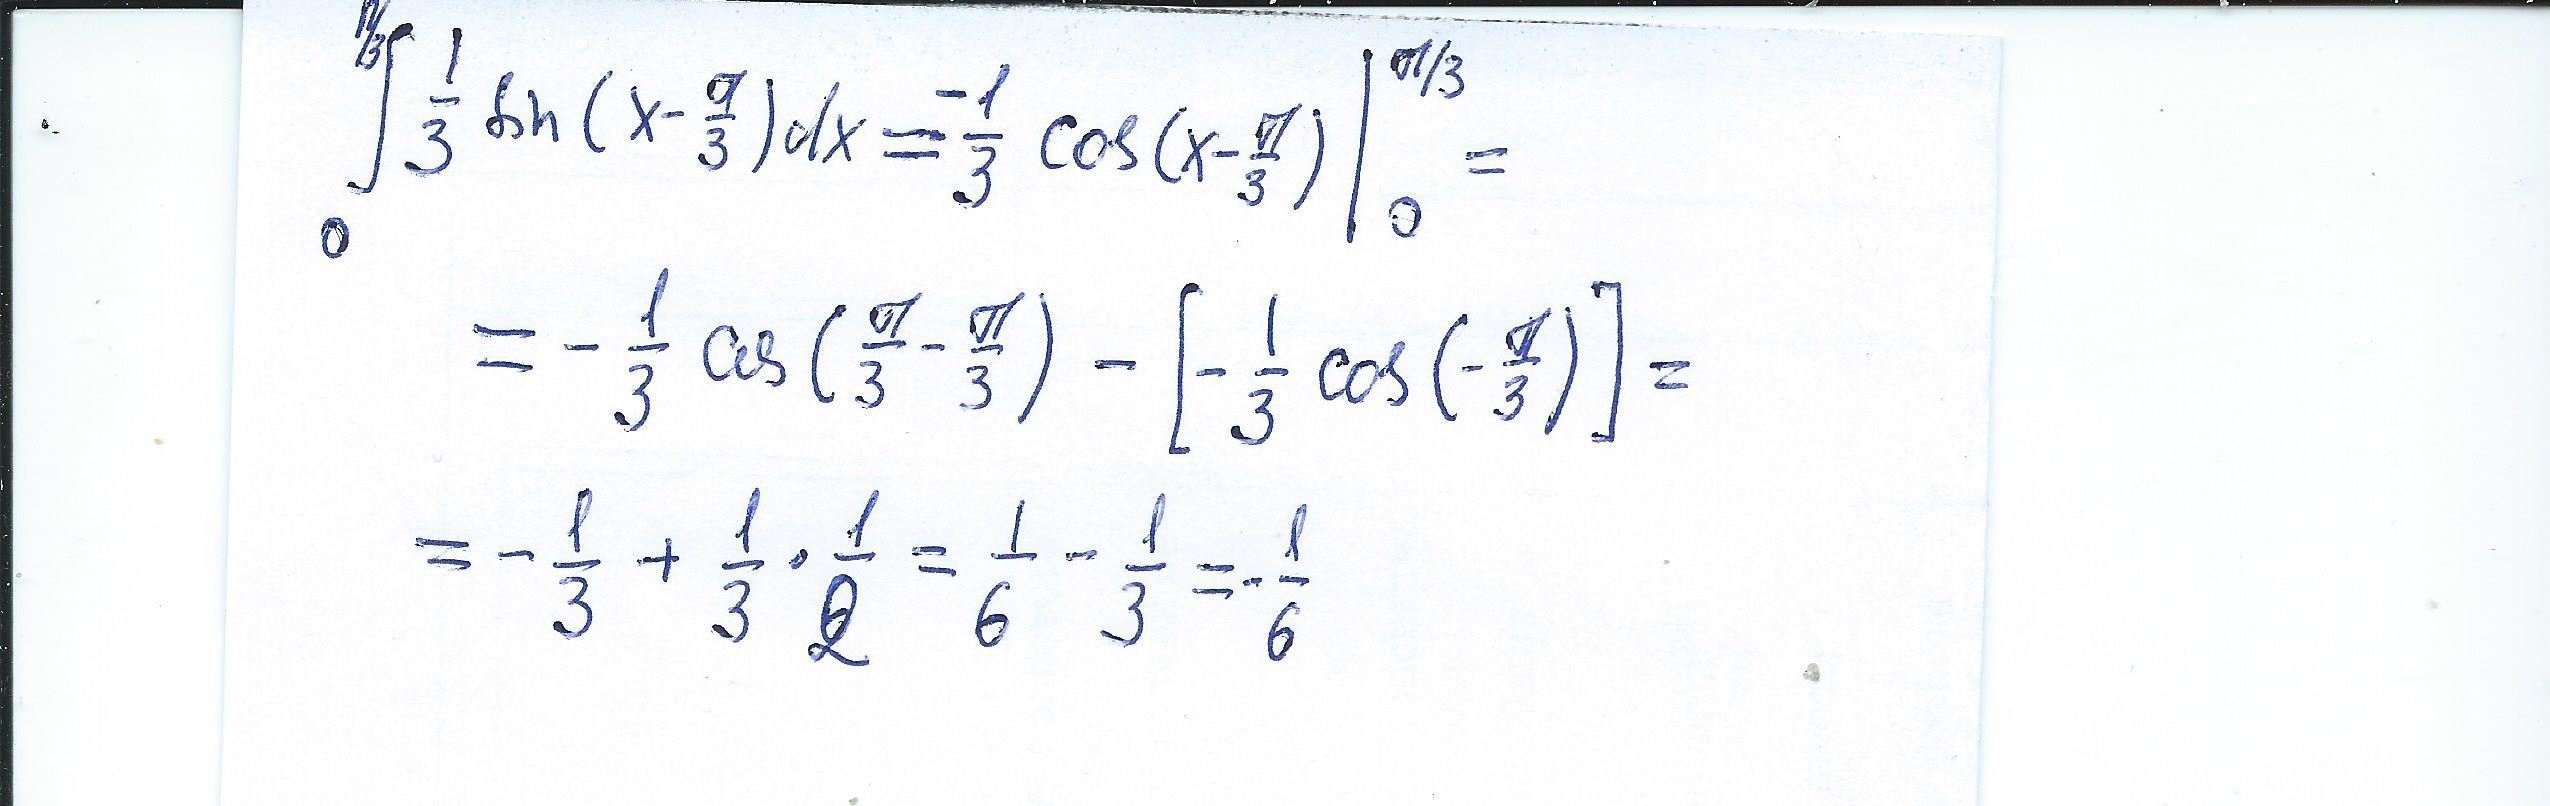 ∫₀^{π/3} 1/3 sin(x - π/3)dx = -1/3 cos(x - π/3) |₀^{π/3} =
= - 1/3 cos(π/3 - π/3) - [- 1/3 cos(- π/3)] =
= - 1/3 + 1/3 · 1/2 = 1/6 - 1/3 = - 1/6